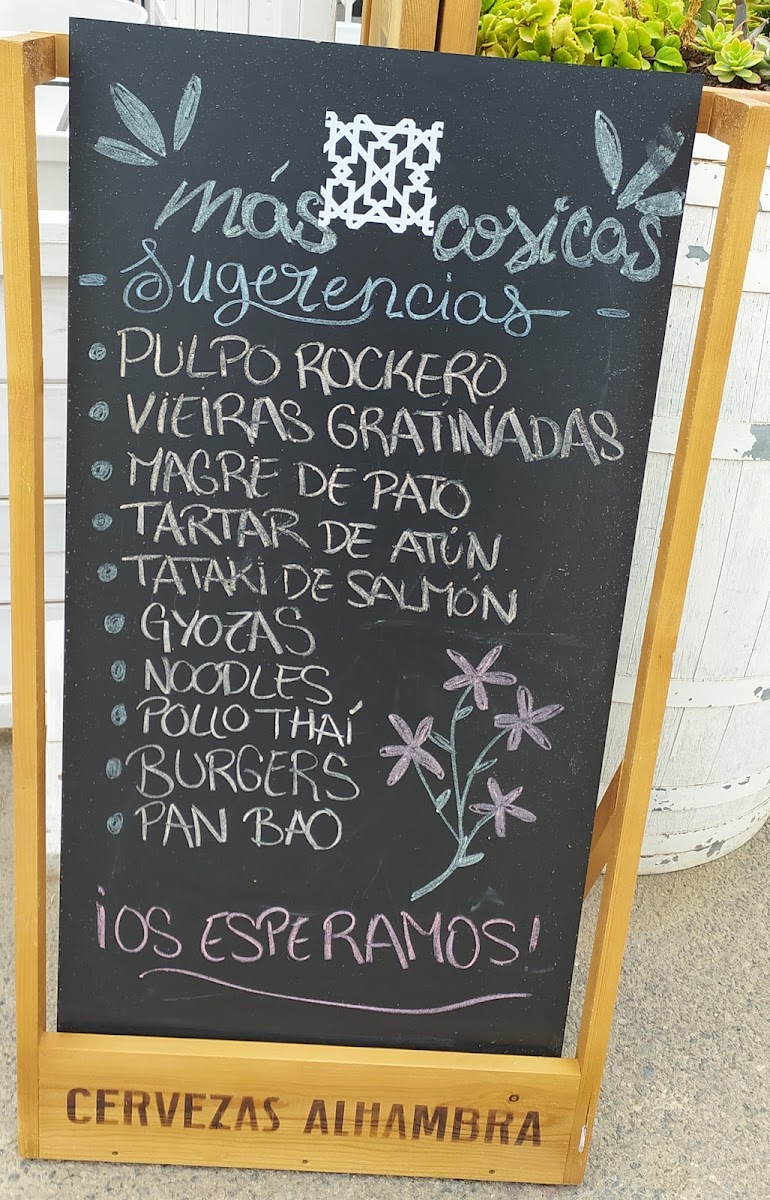 más cosicas
- Sugerencias -
• PULPO ROCKERO
• VIEIRAS GRATINADAS
• MAGRE DE PATO
• TARTAR DE ATÚN
• TATAKI DE SALMÓN
• GYOZAS
• NOODLES
• POLLO THAÍ
• BURGERS
• PAN BAO
¡OS ESPERAMOS!
CERVEZAS ALHAMBRA